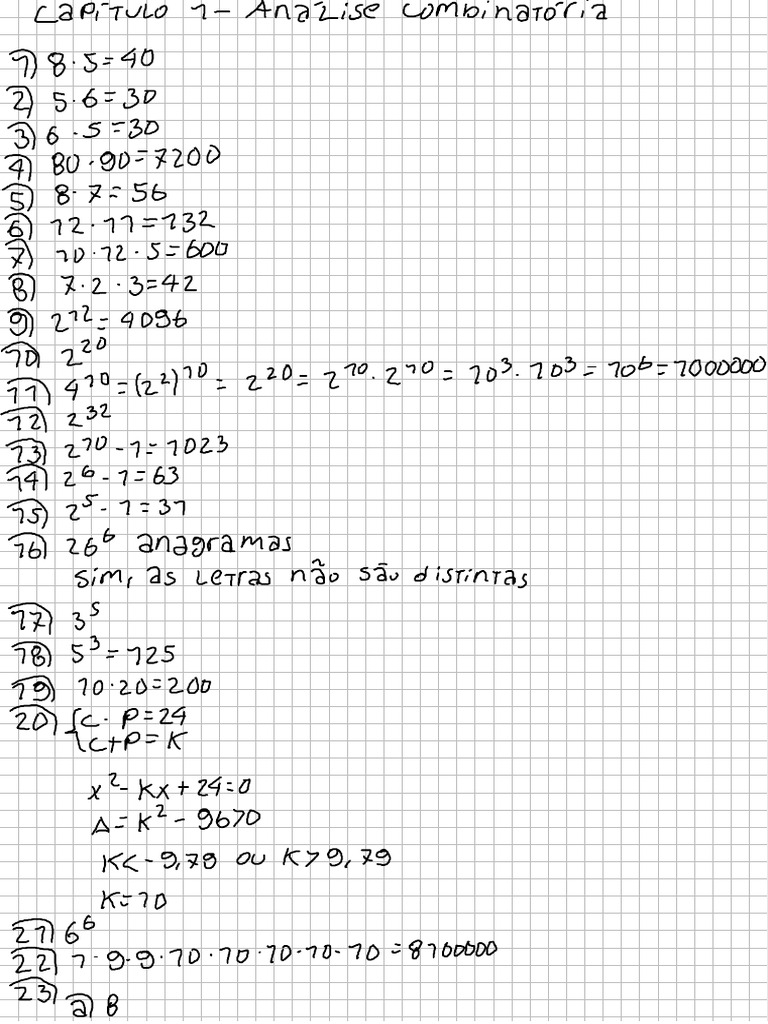 CAPÍTULO 1 - ANÁLISE COMBINATÓRIA
1) 8·5=40
2) 5·6=30
3) 6·5=30
4) 80·90=7200
5) 8·7=56
6) 12·11=132
7) 10·12·5=600
8) 7·2·3=42
9) 2¹²=4096
10) 2²⁰
11) 4¹⁰=(2²)¹⁰=2²⁰=2¹⁰·2¹⁰=10³·10³=10⁶=1000000
12) 2³²
13) 2¹⁰-1=1023
14) 2⁶-1=63
15) 2⁵-1=31
16) 26⁶ anagramas
Sim, as letras não são distintas
17) 3⁵
18) 5³=125
19) 10·20=200
20) {C·P=24
{C+P=K
x²-Kx+24=0
Δ=K²-96>0
K<-9,79 ou K>9,79
K=10
21) 6⁶
22) 1·9·9·10·10·10·10·10=8100000
23)
a) 8